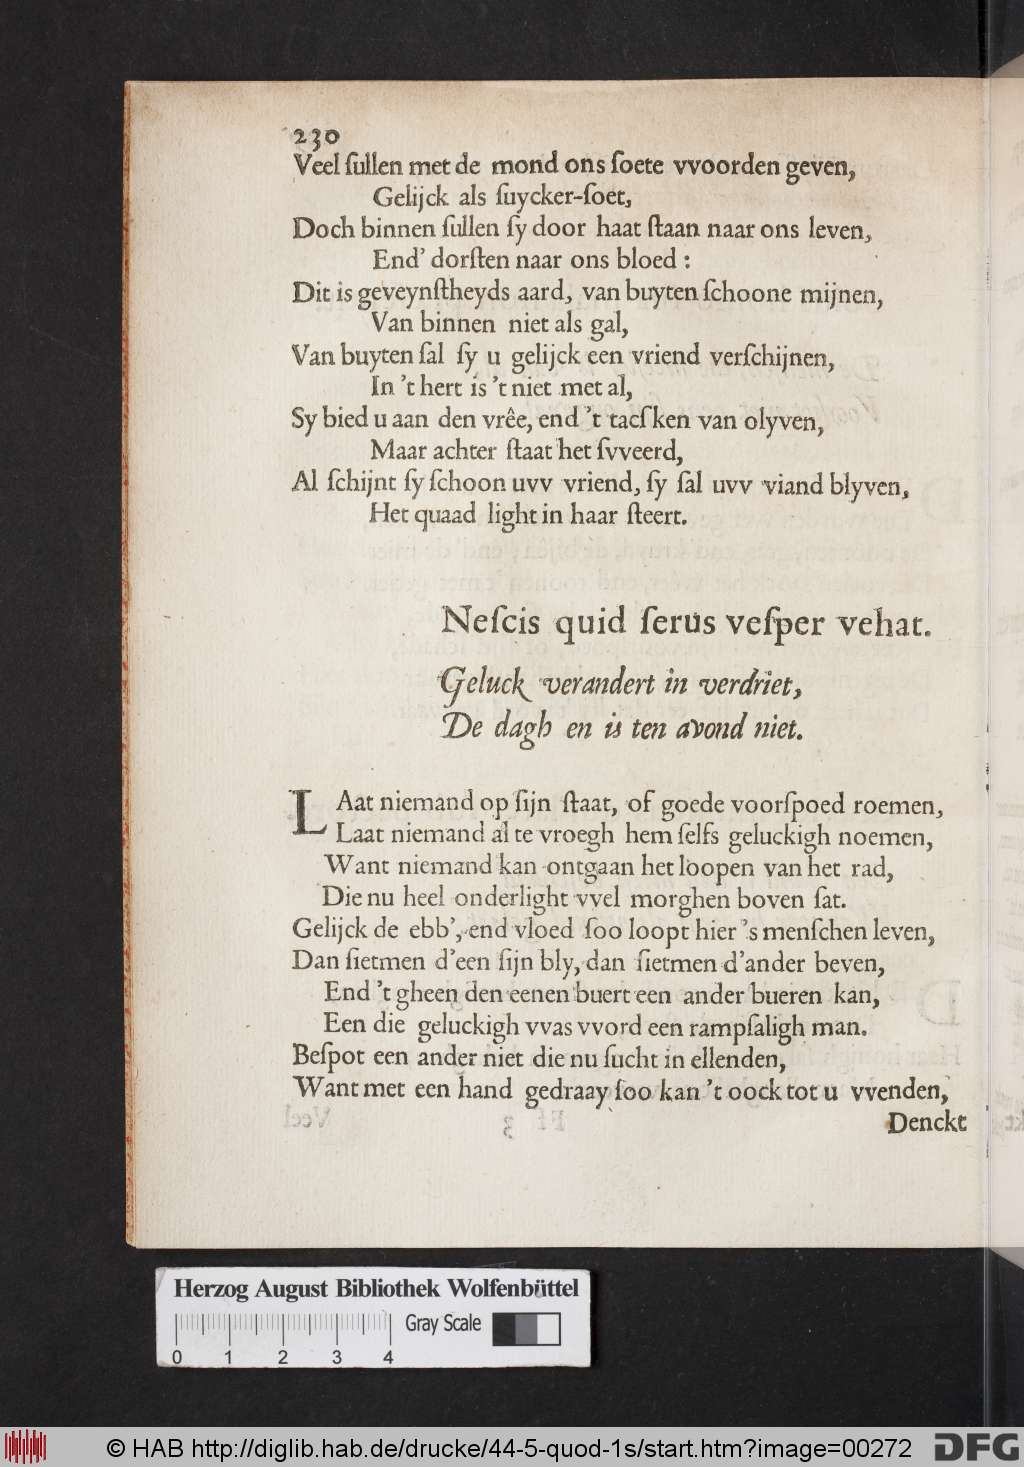 230
Veel ſullen met de mond ons ſoete vvoorden geven,
Gelijck als ſuycker-ſoet,
Doch binnen ſullen ſy door haat ſtaan naar ons leven,
End’ dorſten naar ons bloed :
Dit is geveynſtheyds aard, van buyten ſchoone mijnen,
Van binnen niet als gal,
Van buyten ſal ſy u gelijck een vriend verſchijnen,
In ’t hert is ’t niet met al,
Sy bied u aan den vrêe, end ’t tacſken van olyven,
Maar achter ſtaat het ſvveerd,
Al ſchijnt ſy ſchoon uvv vriend, ſy ſal uvv viand blyven,
Het quaad light in haar ſteert.
Neſcis quid ſerus veſper vehat.
Geluck verandert in verdriet,
De dagh en is ten avond niet.
LAat niemand op ſijn ſtaat, of goede voorſpoed roemen,
Laat niemand al te vroegh hem ſelfs geluckigh noemen,
Want niemand kan ontgaan het loopen van het rad,
Die nu heel onderlight vvel morghen boven ſat.
Gelijck de ebb’, end vloed ſoo loopt hier ’s menſchen leven,
Dan ſietmen d’een ſijn bly, dan ſietmen d’ander beven,
End ’t gheen den eenen buert een ander bueren kan,
Een die geluckigh vvas vvord een rampſaligh man.
Beſpot een ander niet die nu ſucht in ellenden,
Want met een hand gedraay ſoo kan ’t oock tot u vvenden,
Denckt
Herzog August Bibliothek Wolfenbüttel
Gray Scale
0 1 2 3 4
© HAB http://diglib.hab.de/drucke/44-5-quod-1s/start.htm?image=00272
DFG